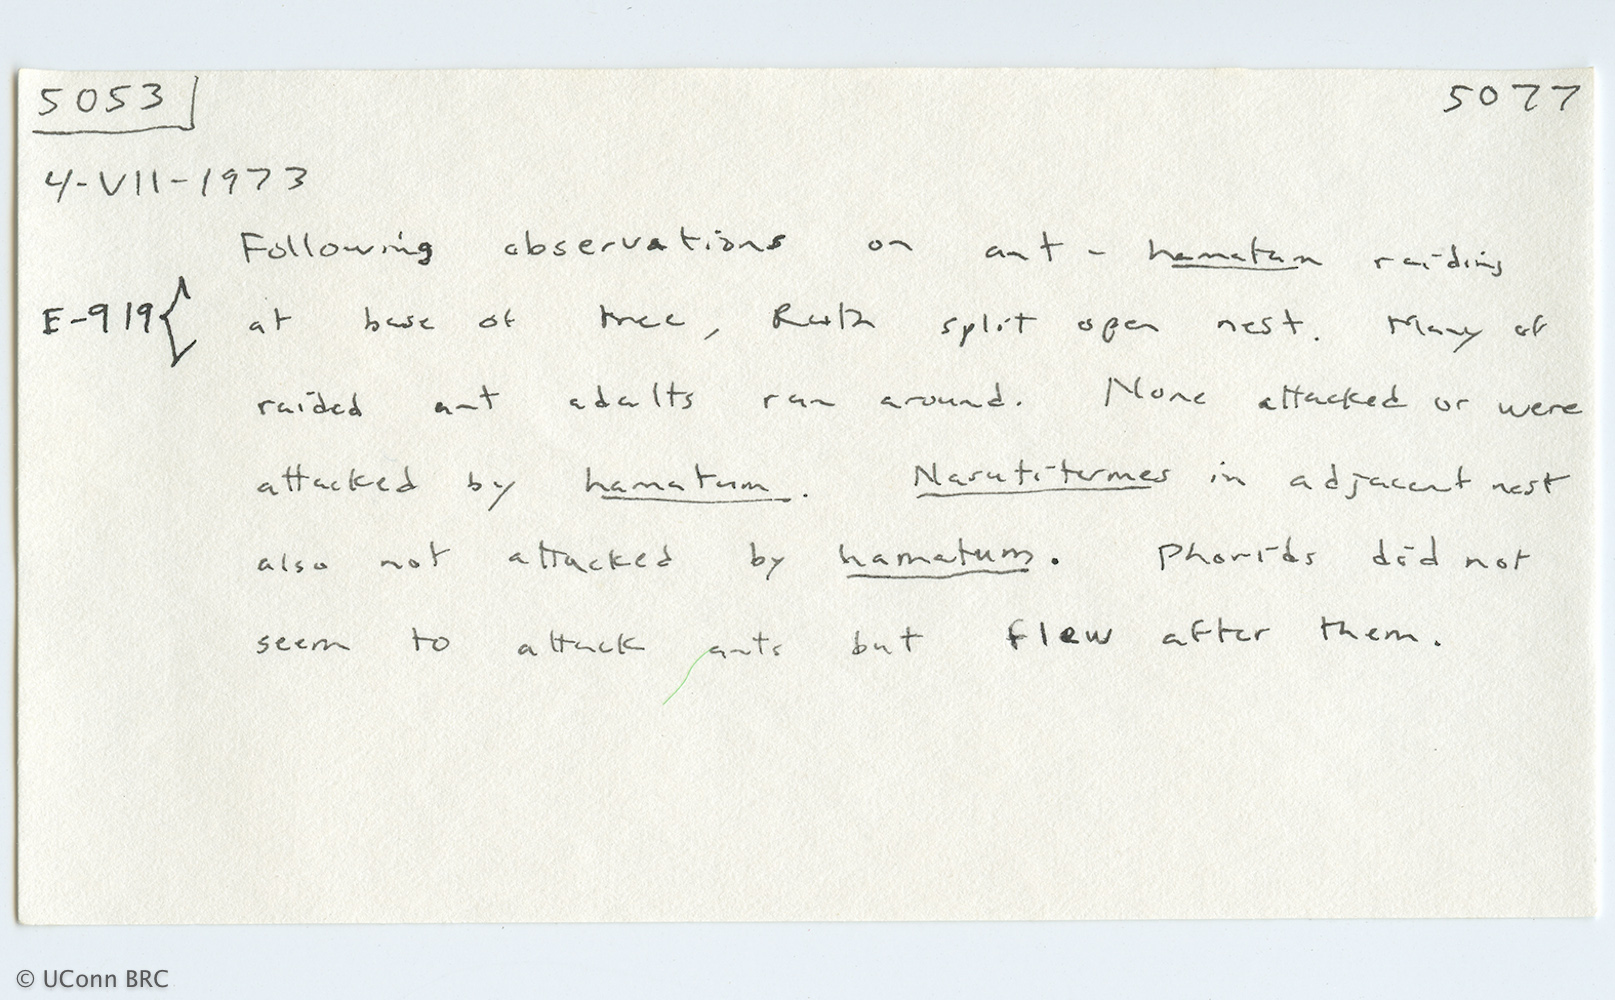 5053 5077
4-VII-1973
Following observations on ant - hamatum raiding
E-919{ at base of tree, Ruth split open nest. Many of
raided ant adults ran around. None attacked or were
attacked by hamatum. Nasutitermes in adjacent nest
also not attacked by hamatum. Phorids did not
seem to attack ants but flew after them.
© UConn BRC